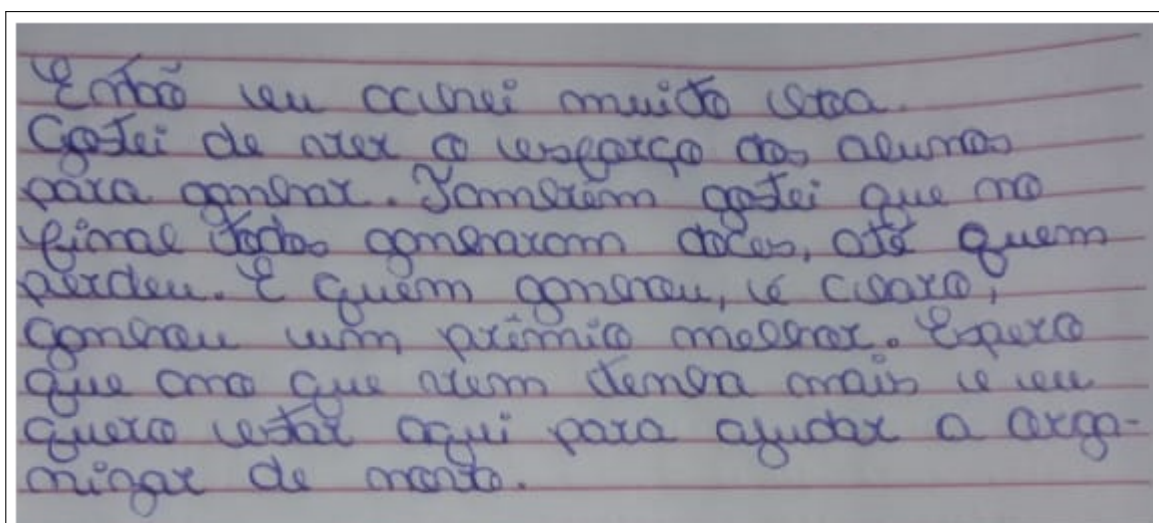 Então eu achei muito boa.
Gostei de ver o esforço dos alunos
para ganhar. Também gostei que no
final todos ganharam doces, até quem
perdeu. E quem ganhou, é claro,
ganhou um prêmio melhor. Espero
que ano que vem tenha mais e eu
quero estar aqui para ajudar a orga-
nizar de novo.